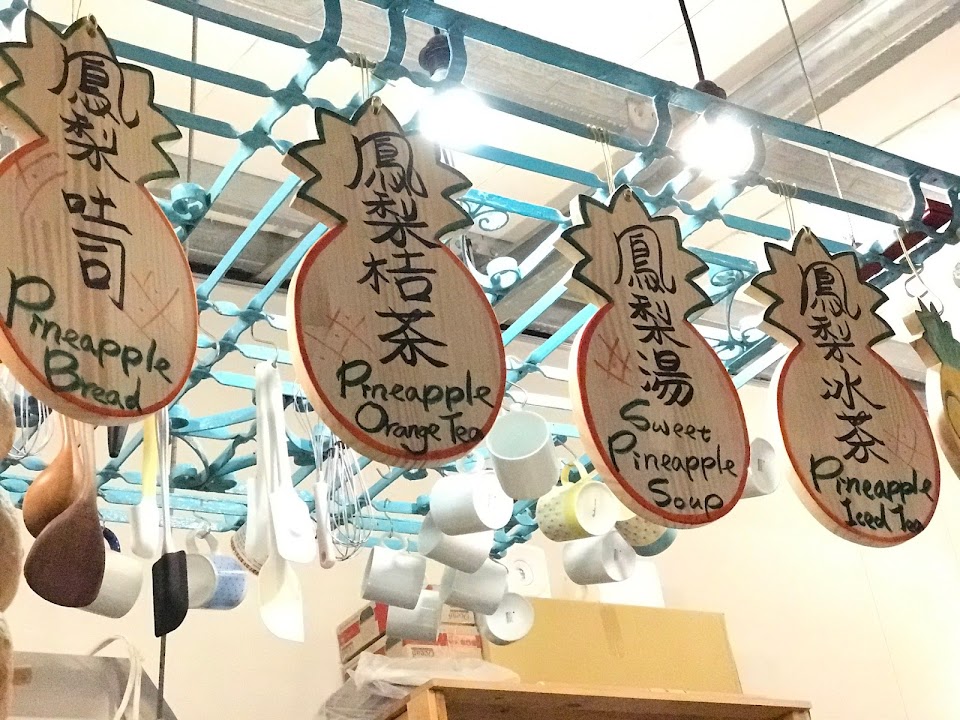 鳳梨吐司
Pineapple
Bread
鳳梨桔茶
Pineapple
Orange Tea
鳳梨湯
Sweet
Pineapple
Soup
鳳梨冰茶
Pineapple
Iced Tea